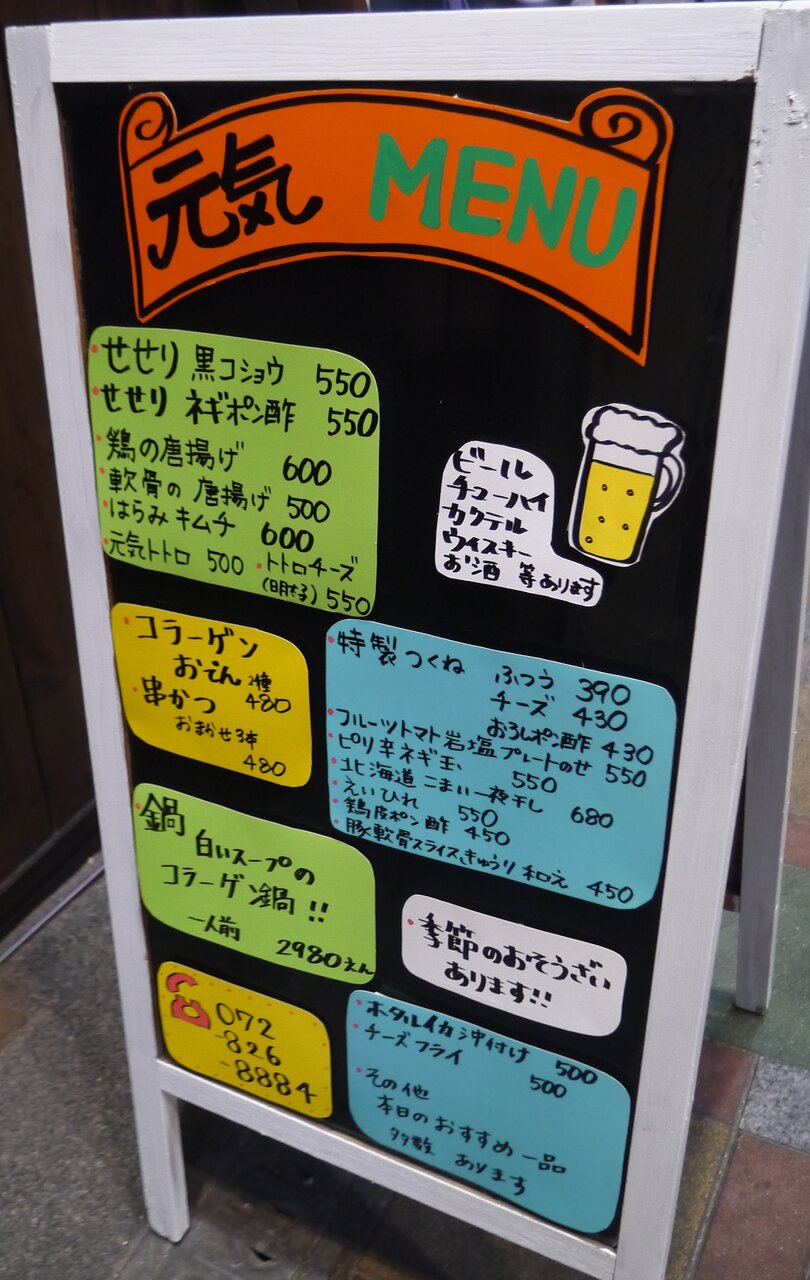 元気 MENU
・せせり 黒コショウ 550
・せせり ネギポン酢 550
・鶏の唐揚げ 600
・軟骨の唐揚げ 500
・はらみキムチ 600
・元気トトロ 500 ・トトロチーズ
(明せる) 550
ビール
チューハイ
カクテル
ウイスキー
お酒 等あります
・コラーゲン
おでん 2種
480
・串かつ
おまかせ3本
480
・特製つくね ふつう 390
チーズ 430
おろしポン酢 430
・フルーツトマト岩塩プレートのせ 550
・ピリ辛ネギ玉 550
・北海道 こまい一夜干し 680
・えいひれ 550
・鶏皮ポン酢 450
・豚軟骨スライスきゅうり和え 450
・鍋
白いスープの
コラーゲン鍋!!
一人前 2980えん
・季節のおそうざい
あります!!
072
-826
-8884
・ホタルイカ沖付け 500
・チーズフライ 500
・その他
本日のおすすめ一品
多数 あります